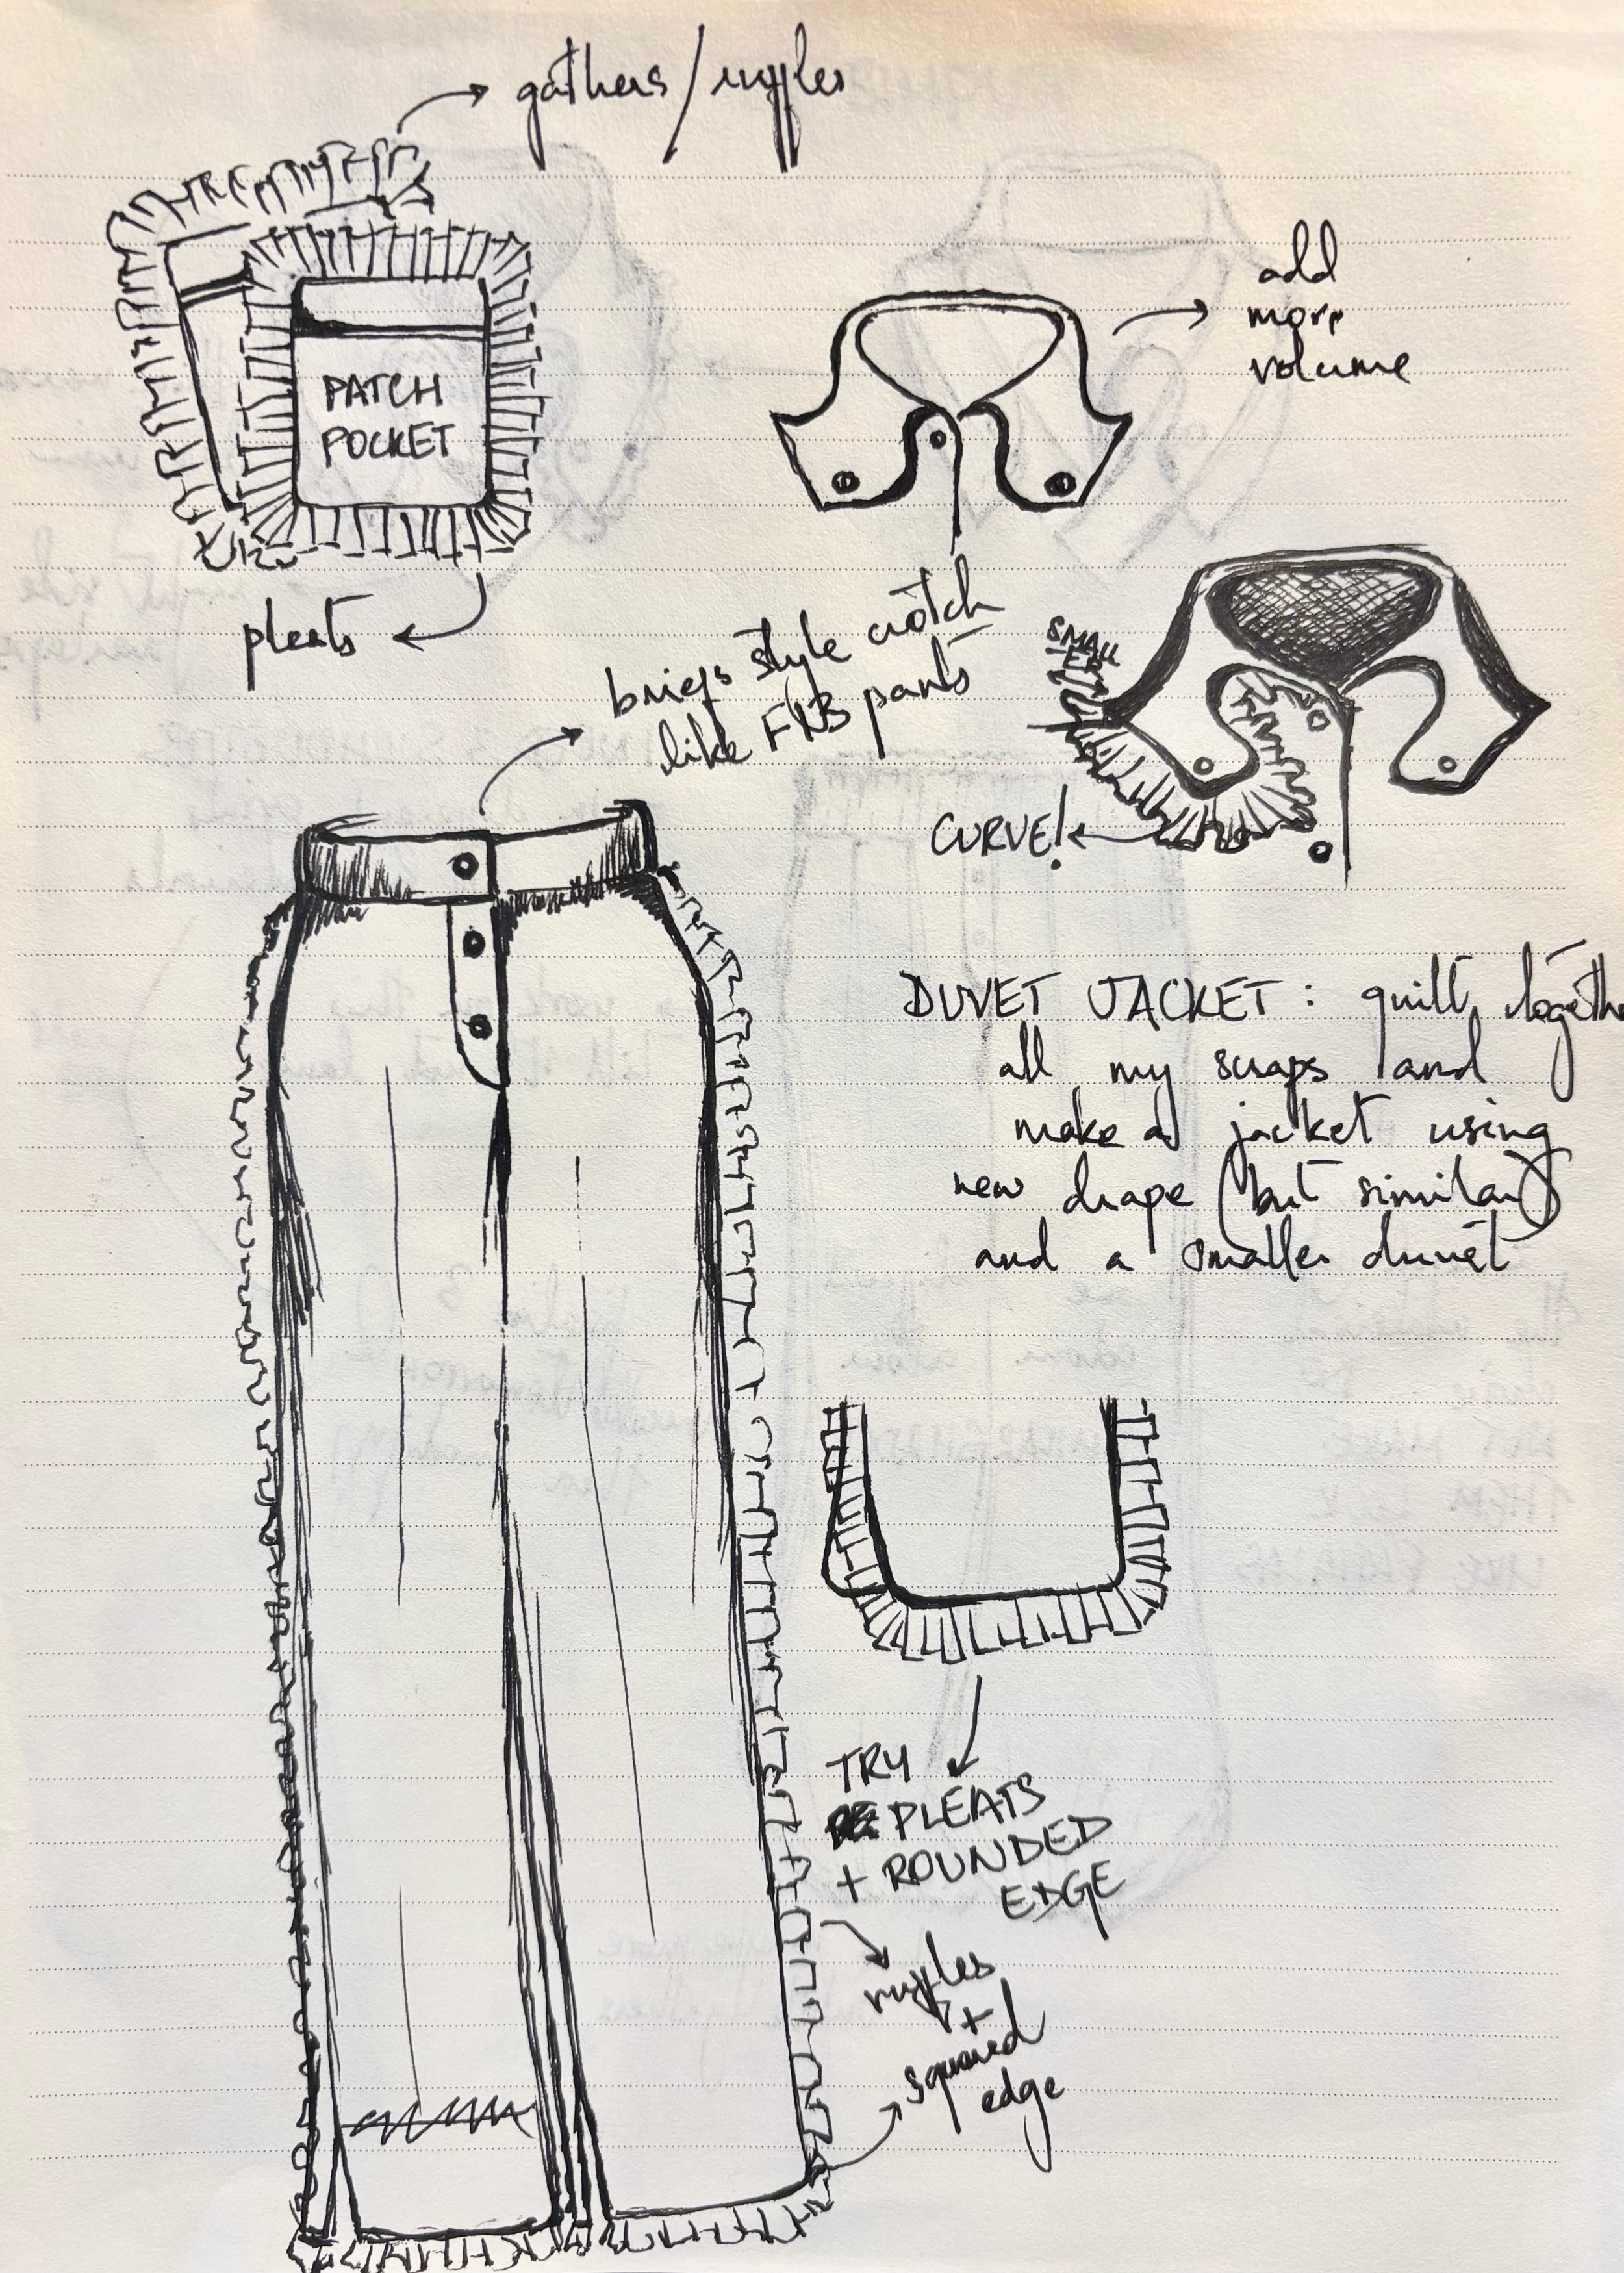 gathers/ruffles
PATCH
POCKET
pleats
add
more
volume
SMALL
ER
CURVE!
briefs style crotch
like FKB pants
DUVET JACKET: quilt togethe
all my scraps and
make a jacket using
new drape (but similar)
and a smaller duvet
TRY
PLEATS
+ ROUNDED
EDGE
ruffles
+
squared
edge